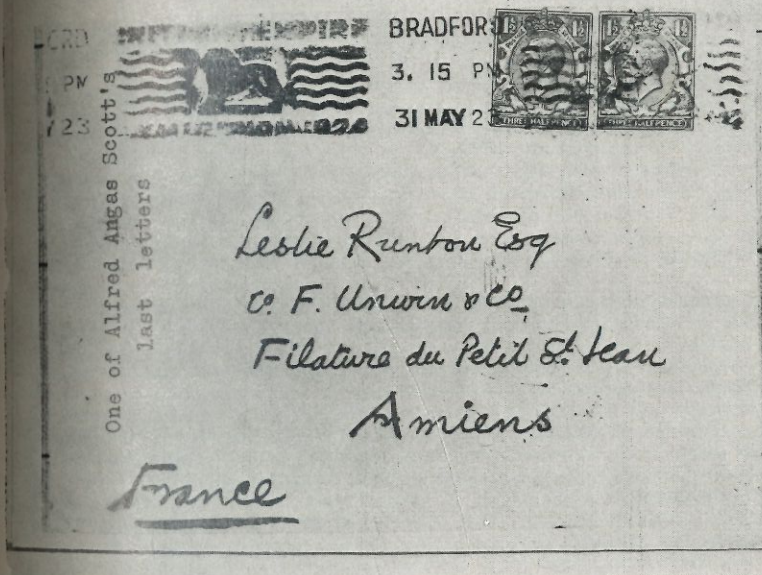 BRADFORD
3. 15 PM
31 MAY 2
PM
EMPIRE
1½ 1½
1½ 1½
THREE HALFPENCE
THREE HALFPENCE
One of Alfred Angas Scott's
last letters
Leslie Runton Esq
c. F. Unwin & Co
Filature du Petit St. Jean
Amiens
France